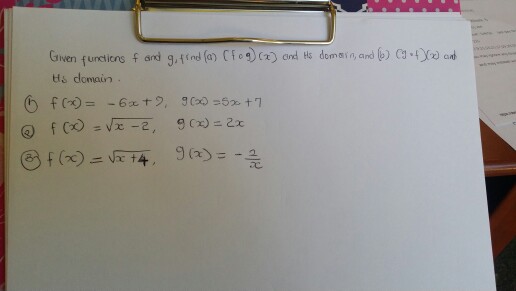 Given functions f and g, find (a) (f o g)(x) and its domain, and (b) (g o f)(x) and
its domain.
① f(x) = -6x+9, g(x) = 5x+7
② f(x) = √x-2, g(x) = 2x
③ f(x) = √x+4, g(x) = -2/x